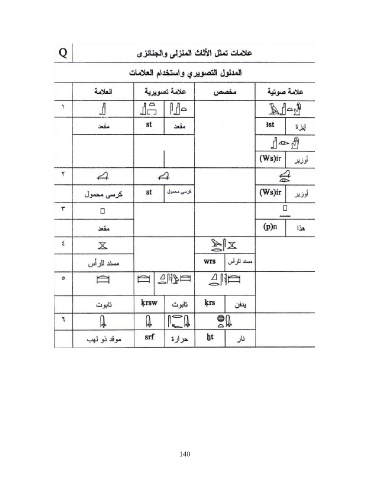 Q علامات تمثل الأثاث المنزلى والجنائزى
المدلول التصويري واستخدام العلامات
العلامة علامة تصويرية مخصص علامة صوتية
١
مقعد st مقعد ꜣst إيزة
(Ws)ir أوزير
٢
كرسى محمول st كرسى محمول (Ws)ir أوزير
٣
مقعد (p)n هذا
٤
مسند للرأس wrs مسند للرأس
٥
تابوت ḳrsw تابوت ḳrs يدفن
٦
موقد ذو لهب srf حرارة ḫt نار
140